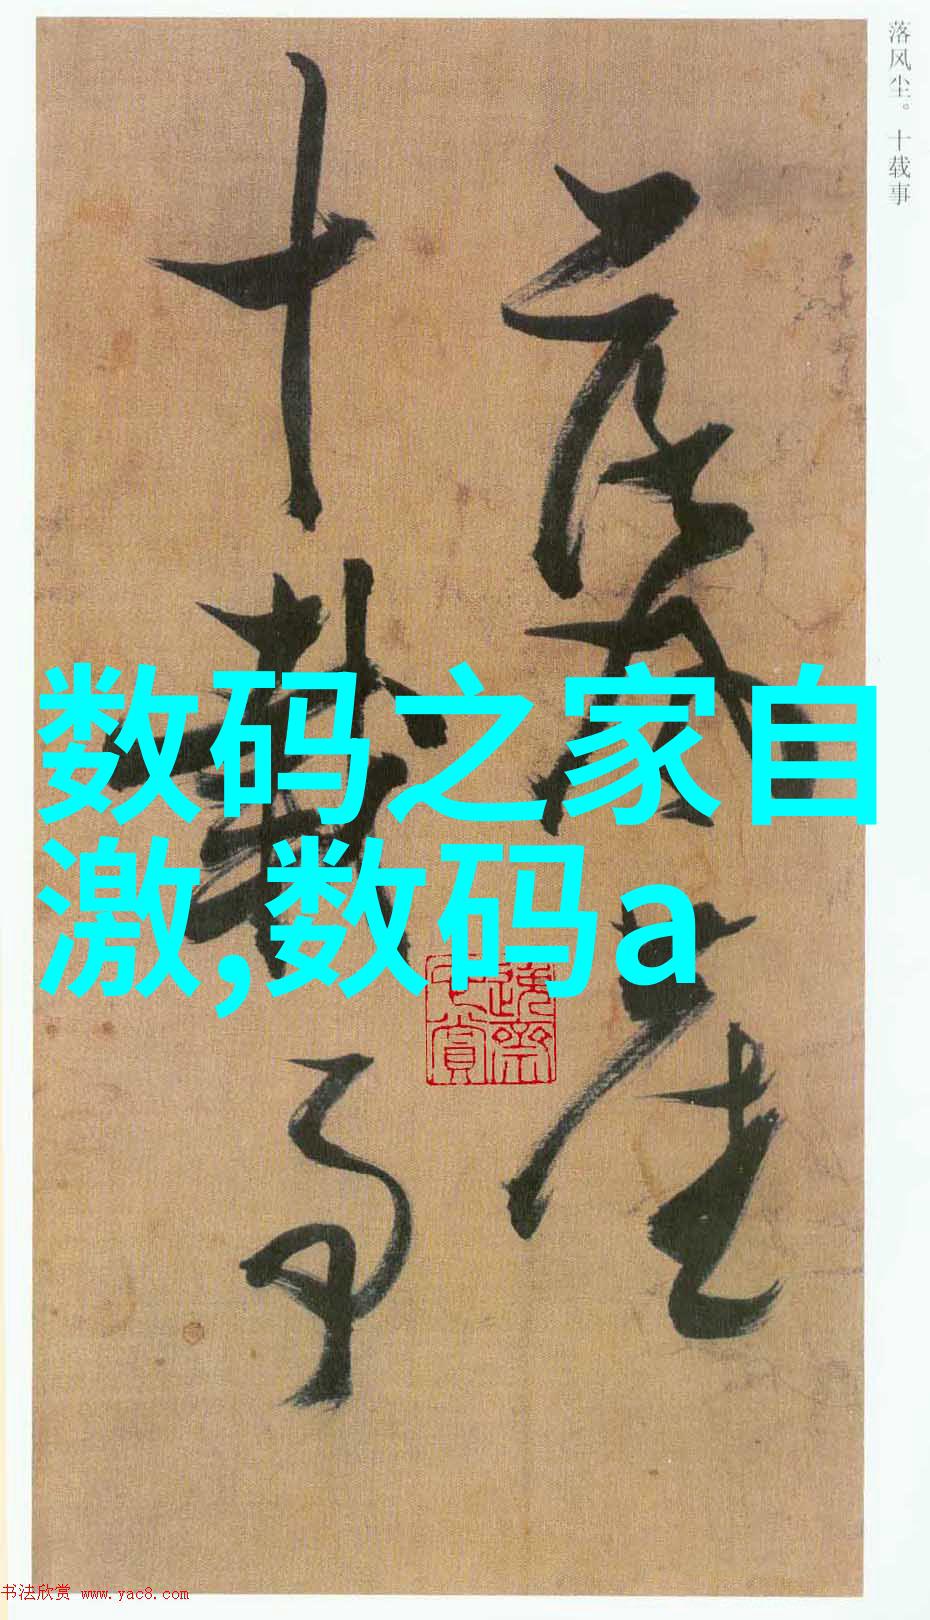 落风尘。十载事
落风尘
十载事
数码之家自
激,数码a
书法欣赏 www.yac8.com